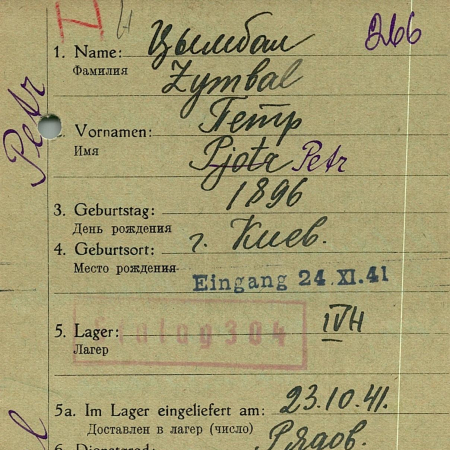 266
1. Name: Цымбал
Фамилия
Zymbal
2. Vornamen: Петр
Имя
Pjotr Petr
Petr
3. Geburtstag: 1896
День рождения
4. Geburtsort: г. Киев.
Место рождения
Eingang 24.XI.41
5. Lager: Stalag 304 IVH
Лагер
5a. Im Lager eingeliefert am: 23.10.41.
Доставлен в лагер (число)
6. Dienstgrad: Рядов.